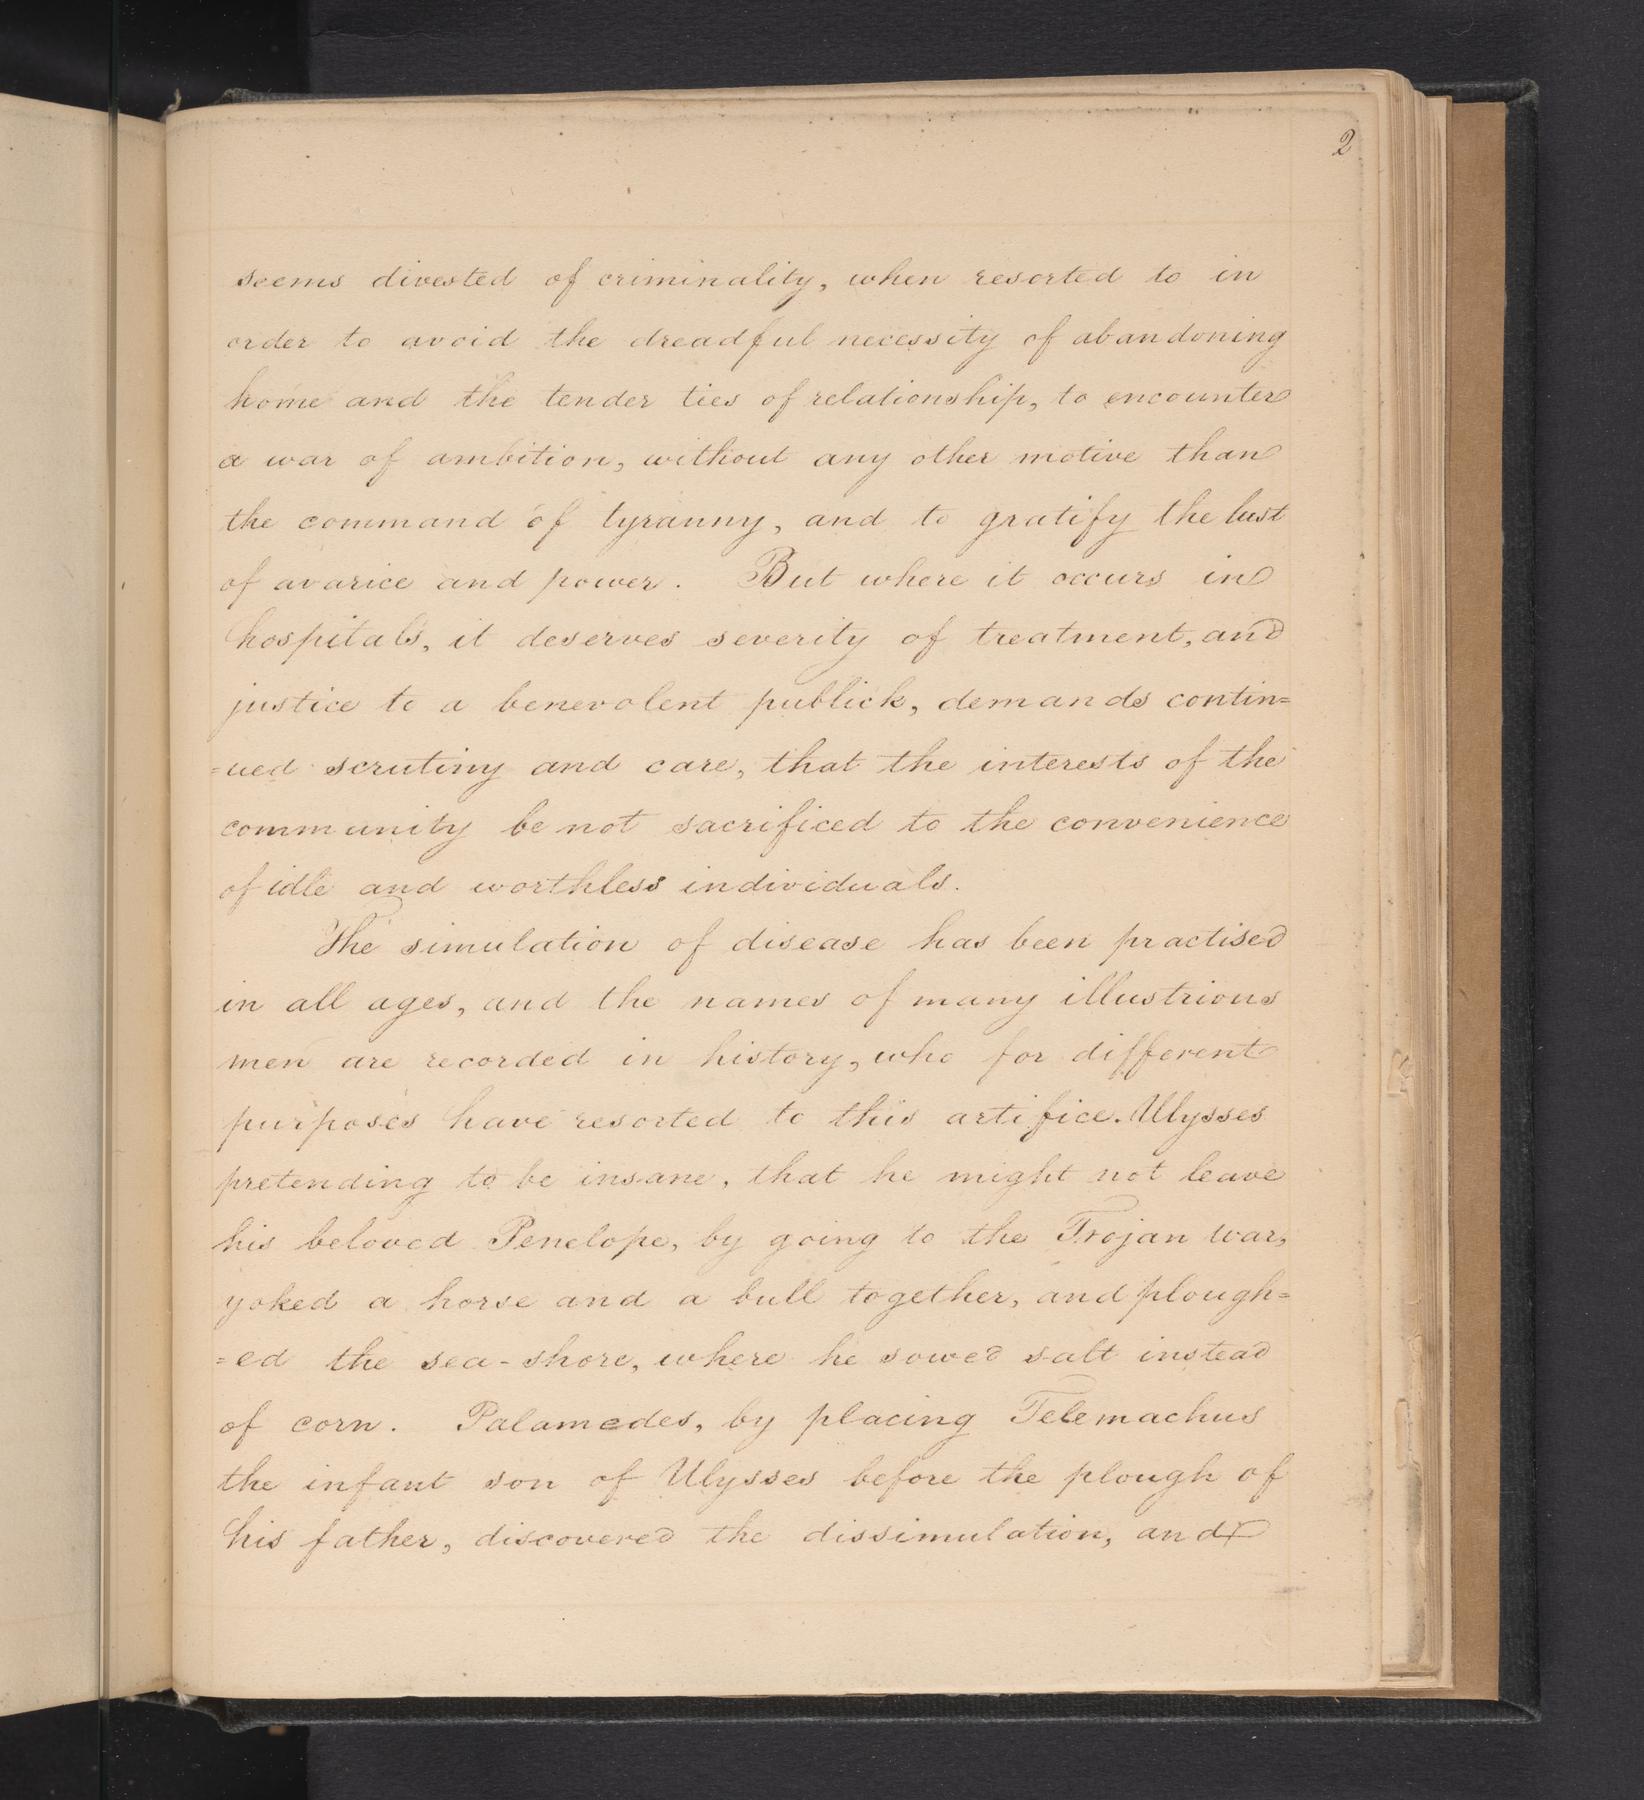 2
seems divested of criminality, when resorted to in
order to avoid the dreadful necessity of abandoning
home and the tender ties of relationship, to encounter
a war of ambition, without any other motive than
the command of tyranny, and to gratify the lust
of avarice and power. But where it occurs in
hospitals, it deserves severity of treatment, and
justice to a benevolent publick, demands contin=
=ued scrutiny and care, that the interests of the
community be not sacrificed to the convenience
of idle and worthless individuals.
The simulation of disease has been practised
in all ages, and the names of many illustrious
men are recorded in history, who for different
purposes have resorted to this artifice. Ulysses
pretending to be insane, that he might not leave
his beloved Penelope, by going to the Trojan war,
yoked a horse and a bull together, and plough=
=ed the sea-shore, where he sowed salt instead
of corn. Palamedes, by placing Telemachus
the infant son of Ulysses before the plough of
his father, discovered the dissimulation, and